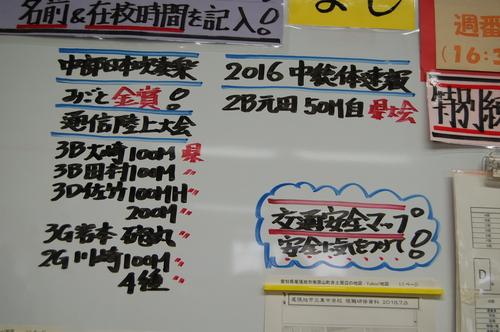 名前&在校時間を記入!
よし
週番
(16:3
特別
中部日本吹奏楽
みごと金賞!
通信陸上大会
3B大崎100M県
3B田村100M〃
3D佐竹100MH〃
200M〃
3G岩本砲丸〃
2G川崎100M〃
4種〃
2016中総体速報
2B元田50M自県大会
交通安全マップ。
安全に気をつけて!